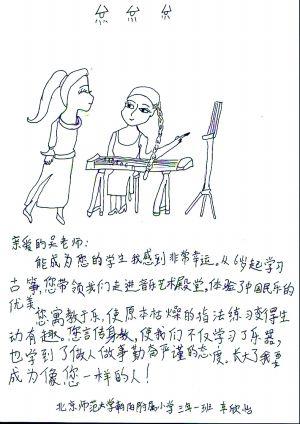 亲爱的吴老师：
能成为您的学生我感到非常幸运。从6岁起学习
古筝，您带领我们走进音乐艺术殿堂，体验了中国民乐的
优美。
您寓教于乐，使原本枯燥的指法练习变得生
动有趣。您言传身教，使我们不仅学习了乐器，
也学到了做人做事勤奋严谨的态度。长大了我要
成为像您一样的人！
北京师范大学朝阳附属小学三年一班 辛欣怡